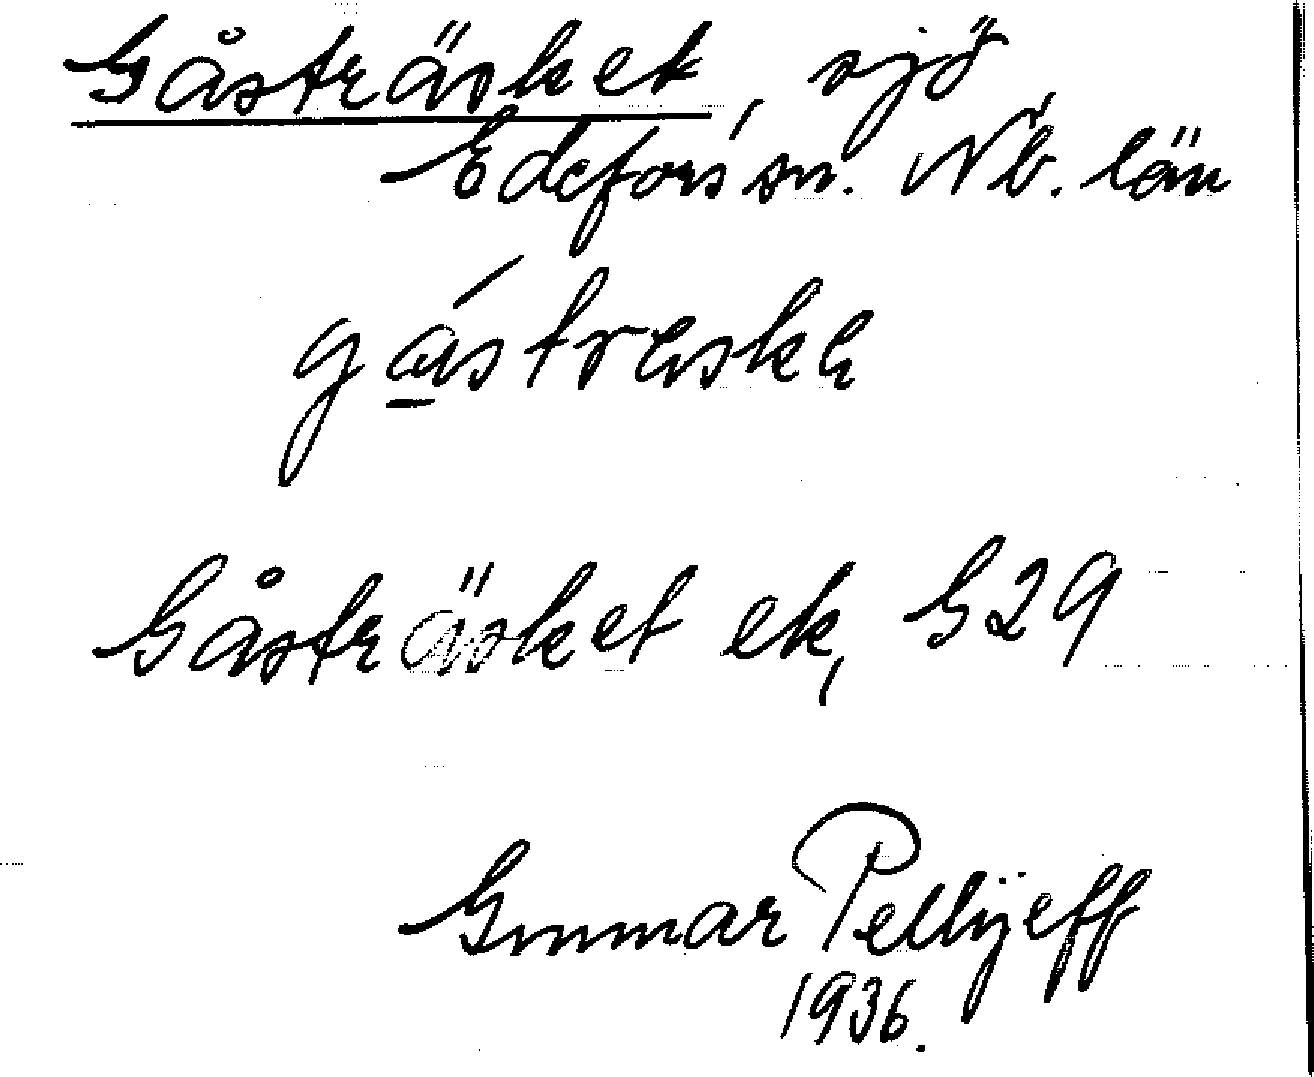 Gåsträsket, sjö
Edefors sn. Nb. län
gástreske
Gåsträsket ek, G29
Gunnar Pellijeff
1936.